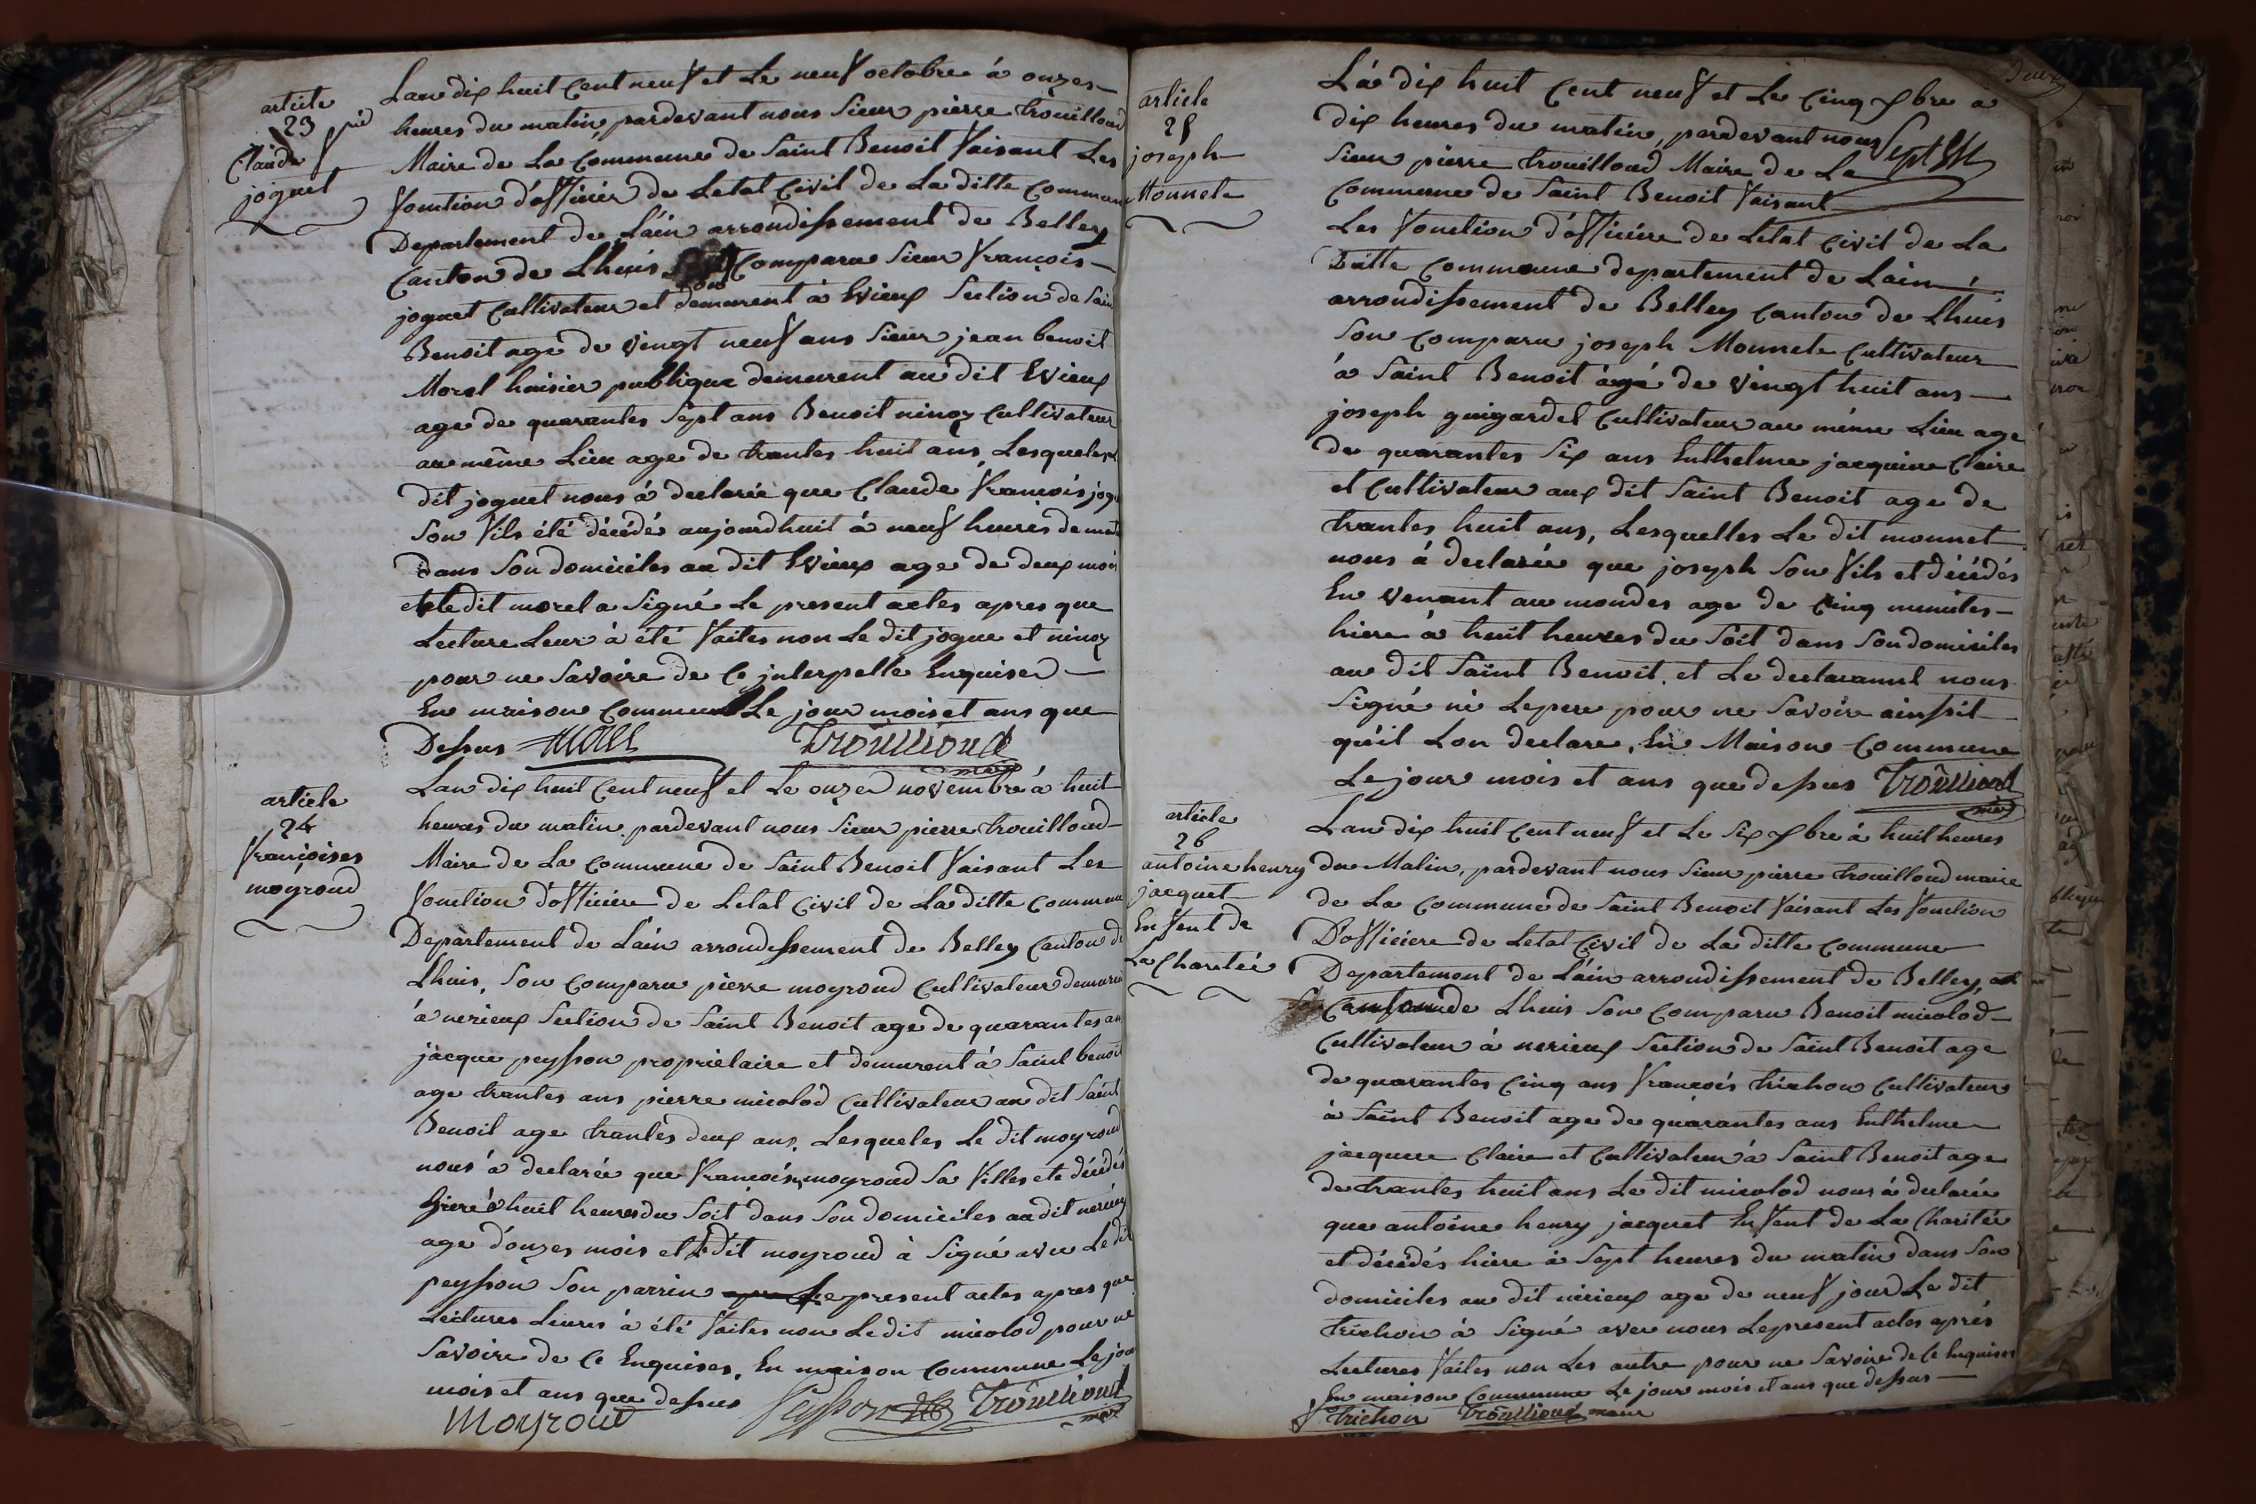 article
23
Claude fçois
joguet
Lan dix huit Cent neuf et Le neuf octobre à onzes
heures du matin, pardevant nous Sieur pierre trouilloud
Maire de La Commune de Saint Benoit faisant Les
fonction d'officier de Letat Civil de La ditte Commune
Departement de Láin arrondissement de Belley
Canton de Lhuis Son Comparu Sieur francois
joguet Cultivateur et demeurent à Evieux Section de Saint
Benoit age de vingt neuf ans Sieur jean benoit
Morel huisier publique demeurent au dit Evieux
age de quarantes Sept ans Benoit ninoz Cultivateur
au même Lieu age de trantes huit ans, Lesqueles Le
dit joguet nous à declarée que Claude francois jogu
Son fils été décédé aujourdhuit à neuf heures de mat
dans Son domiciles au dit Evieux age de deux mois
et Le dit morel a Signé Le present actes apres que
Lecture Leur à été faites non Le dit jogue et ninoz
pour ne Savoire de Ce jnterpelle Enquiser
En maison Commune Le jour mois et ans que
Dessus Morel Trouilloud
maire
article
24
françoises
moyroud
Lan dix huit Cent neuf et Le onze novembre à huit
heures du matin, pardevant nous Sieur pierre trouilloud
Maire de La Commune de Saint Benoit faisant Les
fonction d'officiere de Letat Civil de La ditte Commune
Departement de Láin arrondissement de Belley Canton de
Lhuis, Son Comparu pierre moyroud Cultivateur demeuren
à nerieux Section de Saint Benoit age de quarantes an
jacque peysson propriètaire et demeurent à Saint benoit
age trantes ans pierre micolod Cultivateur au dit Saint
Benoit age trantes deux ans, Lesqueles Le dit moyroud
nous à declarée que françois moyroud Sa filles ete décédés
hiere à huit heures du Soit dans Son domiciles au dit nerieux
age d'onzes mois et L dit moyroud à Signé avec Le dit
peysson Son parrin Le present actes apres que
Lectures Leures à été faites non Le dit micolod pour ne
Savoire de Ce Enquises, En maison Commune Le jour
mois et ans que dessus Peysson Trouilloud
Moyroud maire
article
25
joseph
Monnete
Lá dix huit Cent neuf et Le Cinq xbre a
dix heures du matin, pardevant nous
Sieur pierre trouilloud Maire de La
Commune de Saint Benoit faisant
Les fonction d'officiere de Letat Civil de La
Ditte Commune departement de Láin
arrondissement de Belley Canton de Lhuis
Son Comparu joseph Monnete Cultivateur
à Saint Benoit àgé de vingt huit ans
joseph guigardet Cultivateur au même Lieu age
de quarantes Six ans Enthelme jacquine Claire
et Cultivateur aux dit Saint Benoit age de
trantes huit ans, Lesquelles Le dit monnet
nous à declarée que joseph Son fils et décédés
En venant au mondes age de Cinq minutes
hiere à huit heures du Soit dans Son domiciles
au dit Saint Benoit, et Le declarannt nous
Signé nè Lepere pour ne Savoir ainssit
qu'il Lon declare, En Maison Commune
Le jour mois et ans que dessus Trouilloud
maire
article
26
antoine henry
jacquet
Enfent de
La Charitée
Lan dix huit Cent neuf et Le Six xbre à huit heures
du Matin, pardevant nous Sieur pierre trouilloud maire
de La Commune de Saint Benoit faisant Les fonction
D'officiere de Letat Civil de La ditte Commune
Departement de Láin arrondissement de Belley
Canton de Lhuis Son Comparu Benoit micolod
Cultivateur à nerieux Section de Saint Benoit age
de quarantes Cinq ans francois trichon Cultivateur
à Saint Benoit age de quarantes ans Enthelme
jacquere Claire et Cultivateur à Saint Benoit age
de trantes huit ans Le dit micolod nous à declarée
que antoine henry jacquet Enfent de La Charitée
et décédés hiere à Sept heures du matin dans Son
domiciles au dit nirieux age de neuf jour Le dit
trichon à Signé avec nous Lepresent actes aprés
Lectures faites non Les autre pour ne Savoire de Ce Enquises
En maison Commune Le jour mois et ans que dessus
f trichon Trouilloud maire